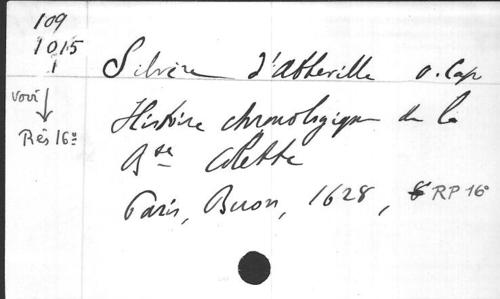 109
1015
1
Silvère d'Abbeville o. Cap
voir
Histoire chronologique de la
Rés 16º
Bse Colette
Paris, Buon, 1628, RP 16º